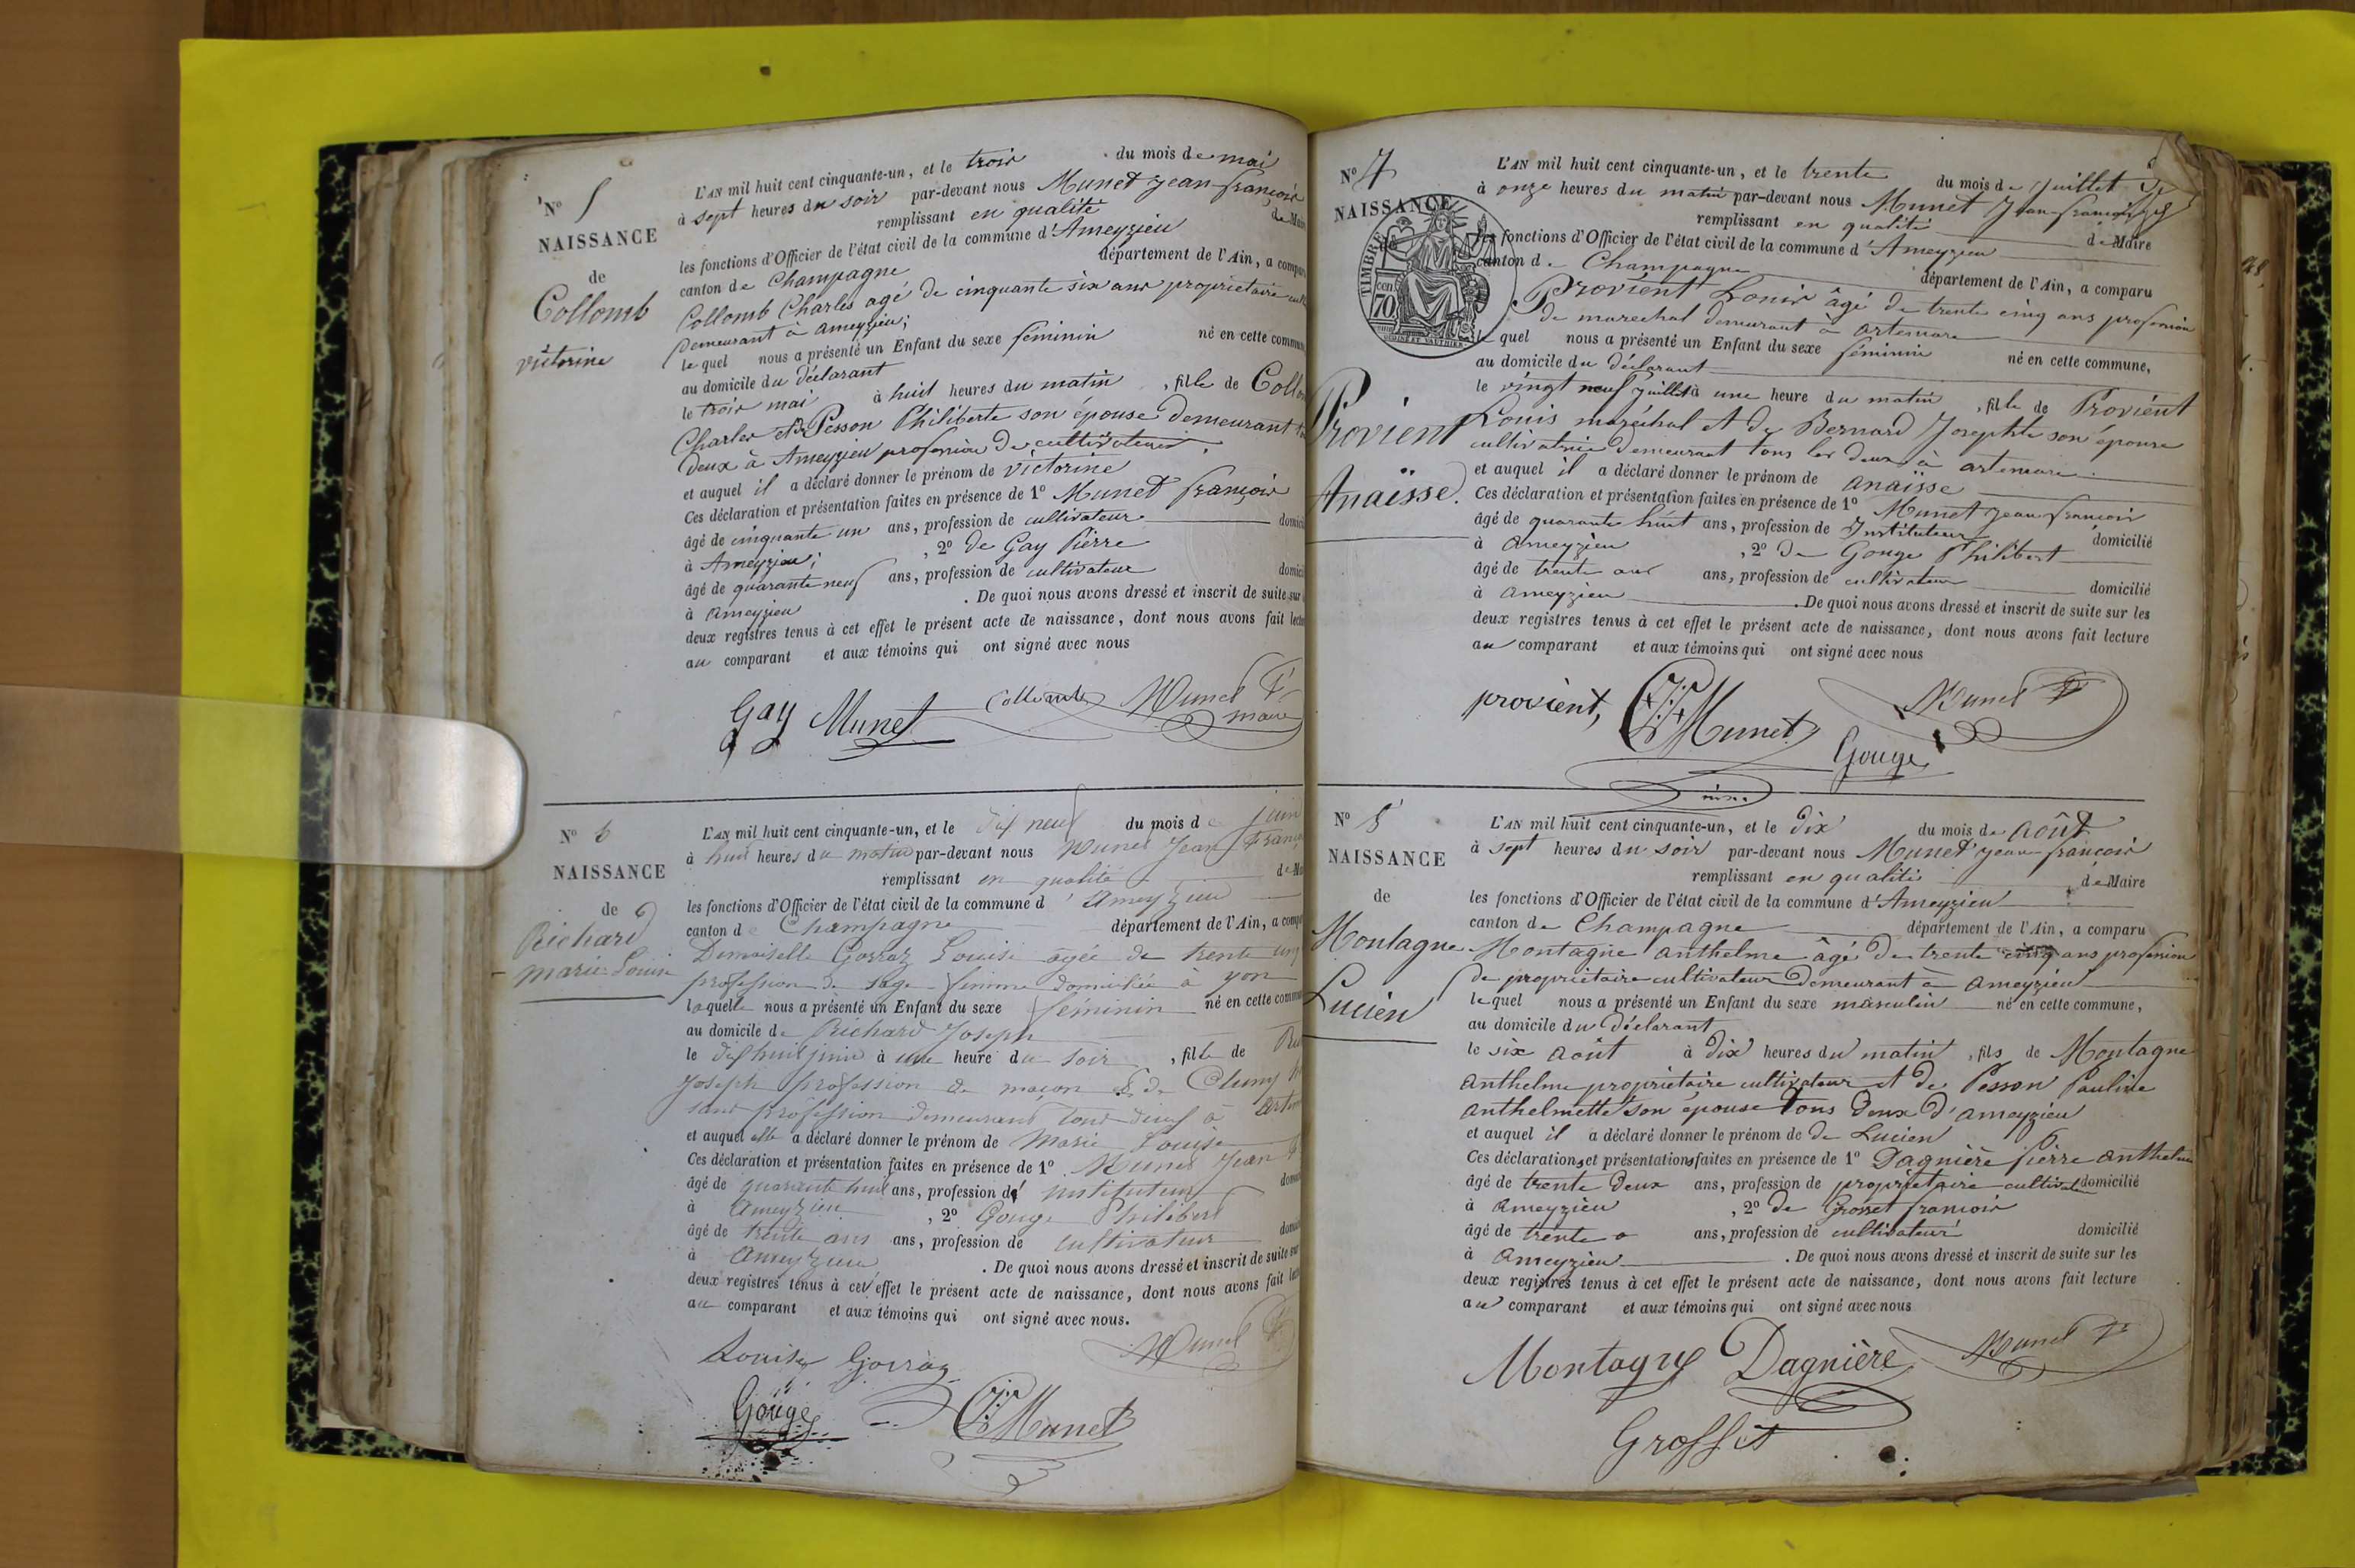 N° 5
NAISSANCE
de
Collomb
victorine
L'AN mil huit cent cinquante-un, et le trois du mois de mai
à sept heures du soir par-devant nous Munet Jean-françois
remplissant en qualité de Maire
les fonctions d'Officier de l'état civil de la commune d'Ameyzieu
canton de Champagne département de l'Ain, a comparu
Collomb Charles agé de cinquante six ans propriétaire
demeurant à ameyzieu;
lequel nous a présenté un Enfant du sexe féminin né en cette commune
au domicile du déclarant
le trois mai à huit heures du matin, fille de Collo
Charles et de Pesson Philiberte son épouse demeurant
deux à Ameyzieu profession de cultivateurs.
et auquel il a déclaré donner le prénom de victorine
Ces déclaration et présentation faites en présence de 1° Munet françois
âgé de cinquante un ans, profession de cultivateur domici
à Ameyzieu; , 2° de Gay Pierre
âgé de quarante neuf ans, profession de cultivateur domici
à ameyzieu . De quoi nous avons dressé et inscrit de suite sur
deux registres tenus à cet effet le présent acte de naissance, dont nous avons fait lectu
au comparant et aux témoins qui ont signé avec nous
Gay Munet Collomb Munet F
maire
N° 6
NAISSANCE
de
Richard
marie Louise
L'AN mil huit cent cinquante-un, et le dix neuf du mois de juin
à huit heures du matin par-devant nous Munet Jean Franç
remplissant en qualité de Ma
les fonctions d'Officier de l'état civil de la commune d'Ameyzieu
canton de Champagne département de l'Ain, a compa
Demoiselle Gorraz Louise agée de trente un
profession de sage femme domiciliée à yon
laquelle nous a présenté un Enfant du sexe féminin né en cette commu
au domicile de Richard Joseph
le dix huit juin à une heure du soir, fille de
Joseph profession de maçon & de Cluny
sans profession demeurant tous deux à Artem
et auquel elle a déclaré donner le prénom de Marie Louise
Ces déclaration et présentation faites en présence de 1° Munet Jean F
âgé de quarante huit ans, profession d' instituteur domi
à Ameyzieu , 2° Gouge Philibert
âgé de trente ans ans, profession de cultivateur domi
à Ameyzieu . De quoi nous avons dressé et inscrit de suite sur
deux registres tenus à cet effet le présent acte de naissance, dont nous avons fait lect
au comparant et aux témoins qui ont signé avec nous.
Louise Gorraz Munet F
Gouge Munet
N° 7
NAISSANCE
TIMBRE
cen
70
Provient
Anaïsse.
L'AN mil huit cent cinquante-un, et le trente du mois de juillet
à onze heures du matin par-devant nous Munet Jean-françois
remplissant en qualité de Maire
les fonctions d'Officier de l'état civil de la commune d'Ameyzieu
canton de Champagne département de l'Ain, a comparu
Provient Louis âgé de trente cinq ans profession
de maréchal demeurant à artemare
lequel nous a présenté un Enfant du sexe féminin né en cette commune,
au domicile du déclarant
le vingt neuf juillet à une heure du matin, fille de Provient
Louis maréchal et de Bernard Josephte son épouse
cultivatrice demeurant tous les deux à artemare.
et auquel il a déclaré donner le prénom de anaïsse
Ces déclaration et présentation faites en présence de 1° Munet Jean françois
âgé de quarante huit ans, profession de Instituteur domicilié
à ameyzieu , 2° de Gouge Philibert
âgé de trente ans ans, profession de cultivateur domicilié
à ameyzieu . De quoi nous avons dressé et inscrit de suite sur les
deux registres tenus à cet effet le présent acte de naissance, dont nous avons fait lecture
au comparant et aux témoins qui ont signé avec nous
provient, Munet Munet F
Gouge
N° 8
NAISSANCE
de
Montagne
Lucien
L'AN mil huit cent cinquante-un, et le dix du mois de août
à sept heures du soir par-devant nous Munet Jean-françois
remplissant en qualité de Maire
les fonctions d'Officier de l'état civil de la commune d'Ameyzieu
canton de Champagne département de l'Ain, a comparu
Montagne anthelme âgé de trente cinq ans profession
de propriétaire cultivateur demeurant à ameyzieu
lequel nous a présenté un Enfant du sexe masculin né en cette commune,
au domicile du déclarant
le six août à dix heures du matin, fils de Montagne
anthelme propriétaire cultivateur et de Pesson Pauline
anthelmette son épouse tous deux d'ameyzieu
et auquel il a déclaré donner le prénom de de Lucien
Ces déclarations et présentations faites en présence de 1° Dagnière pierre anthelme
âgé de trente deux ans, profession de propriétaire cultivateur domicilié
à ameyzieu , 2° de Grosset françois
âgé de trente ans, profession de cultivateur domicilié
à ameyzieu . De quoi nous avons dressé et inscrit de suite sur les
deux registres tenus à cet effet le présent acte de naissance, dont nous avons fait lecture
au comparant et aux témoins qui ont signé avec nous
Montagne Dagnière Munet F
Grosset